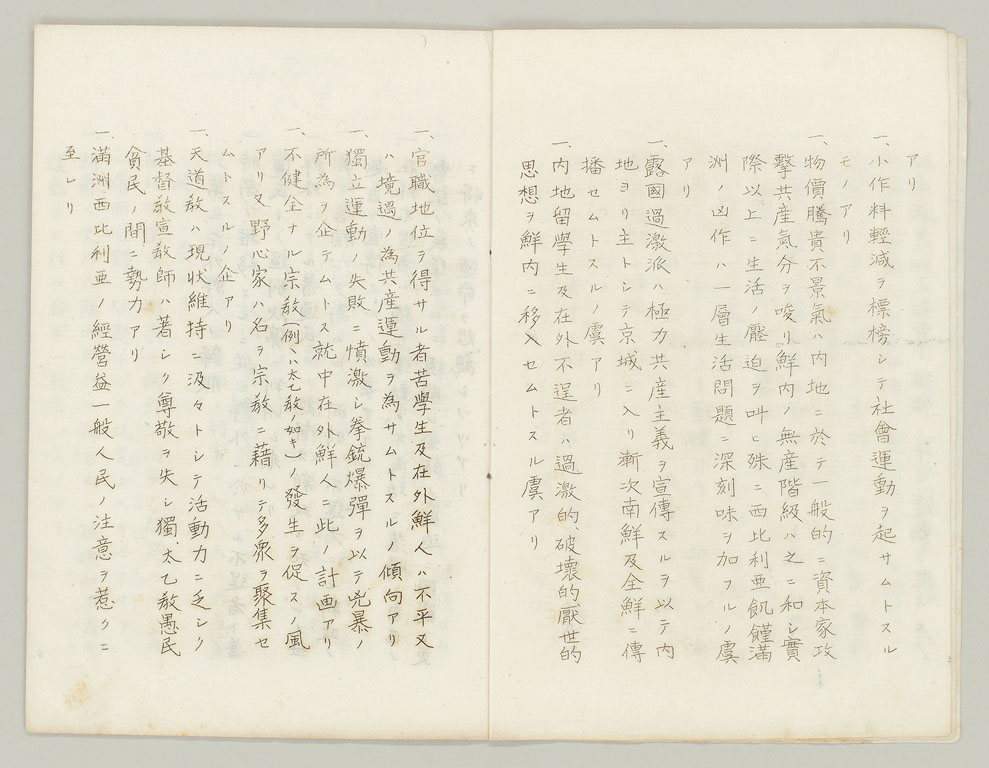 アリ
一、小作料輕減ヲ標榜シテ社會運動ヲ起サムトスル
モノアリ
一、物價騰貴不景氣ハ内地ニ於テ一般的ニ資本家攻
擊共産氣分ヲ唆リ鮮内ノ無産階級ハ之ニ和シ實
際以上ニ生活ノ壓迫ヲ叫ヒ殊ニ西比利亜飢饉滿
洲ノ凶作ハ一層生活問題ニ深刻味ヲ加フルノ虞
アリ
一、露國過激派ハ極力共産主義ヲ宣傳スルヲ以テ内
地ヨリ主トシテ京城ニ入リ漸次南鮮及全鮮ニ傳
播セムトスルノ虞アリ
一、内地留學生及在外不逞者ハ過激的、破壞的、厭世的
思想ヲ鮮内ニ移入セムトスル虞アリ
一、官職地位ヲ得サル者苦學生及在外鮮人ハ不平又
ハ境遇ノ為共産運動ヲ為サムトスルノ傾向アリ
一、獨立運動ノ失敗ニ憤激シ拳銃爆彈ヲ以テ兇暴ノ
所為ヲ企テムトス就中在外鮮人ニ此ノ計画アリ
一、不健全ナル宗敎(例ヘハ太乙敎ノ如キ)ノ發生ヲ促スノ風
アリ又野心家ハ名ヲ宗敎ニ藉リテ多衆ヲ聚集セ
ムトスルノ企アリ
一、天道敎ハ現状維持ニ汲々トシテ活動力ニ乏シク
基督敎宣敎師ハ著シク尊敬ヲ失シ獨、太乙敎愚民
貧民ノ間ニ勢力アリ
一、滿洲西比利亜ノ經營益一般人民ノ注意ヲ惹クニ
至レリ